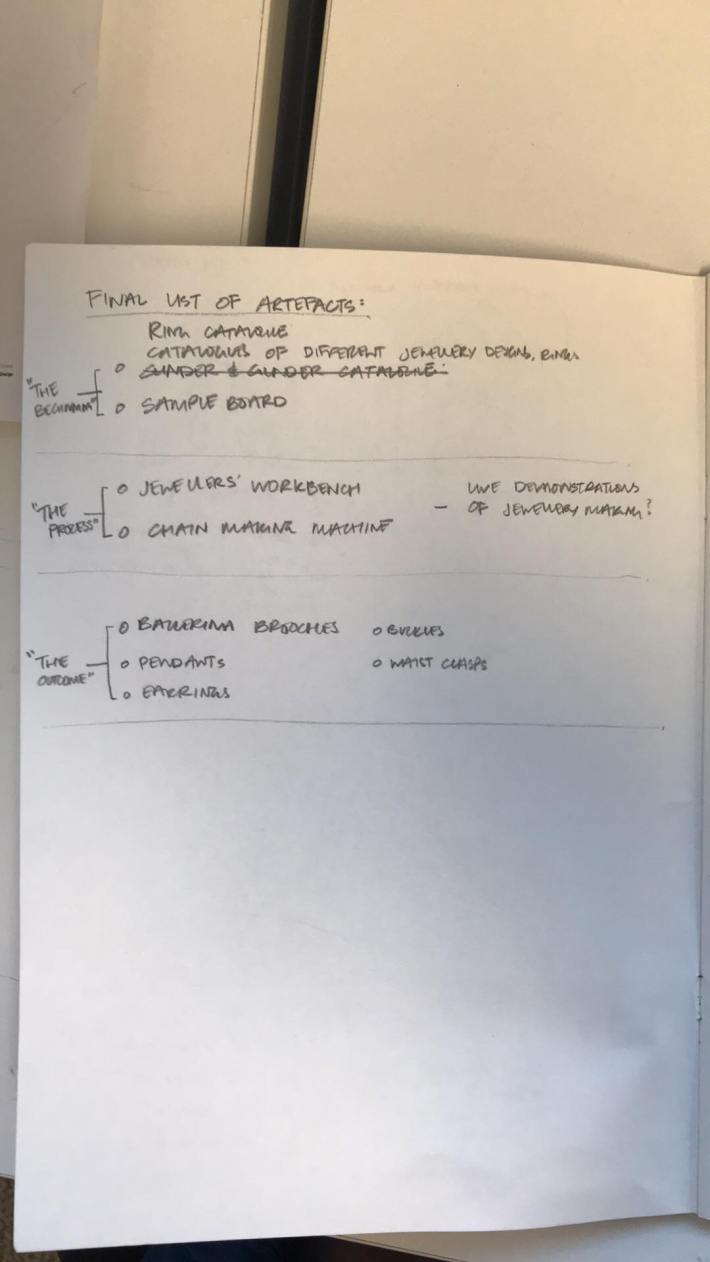 FINAL LIST OF ARTEFACTS:
RING CATALOGUE
CATALOGUES OF DIFFERENT JEWELLERY DESIGNS, RINGS
CATALOGUE:
"THE BEGINNING"
o SAMPLE BOARD
"THE PROCESS"
o JEWELLERS' WORKBENCH
o CHAIN MAKING MACHINE
- LIVE DEMONSTRATIONS
OF JEWELLERY MAKING?
"THE OUTCOME"
o BALLERINA BROOCHES
o PENDANTS
o EARRINGS
o BUCKLES
o WAIST CLASPS